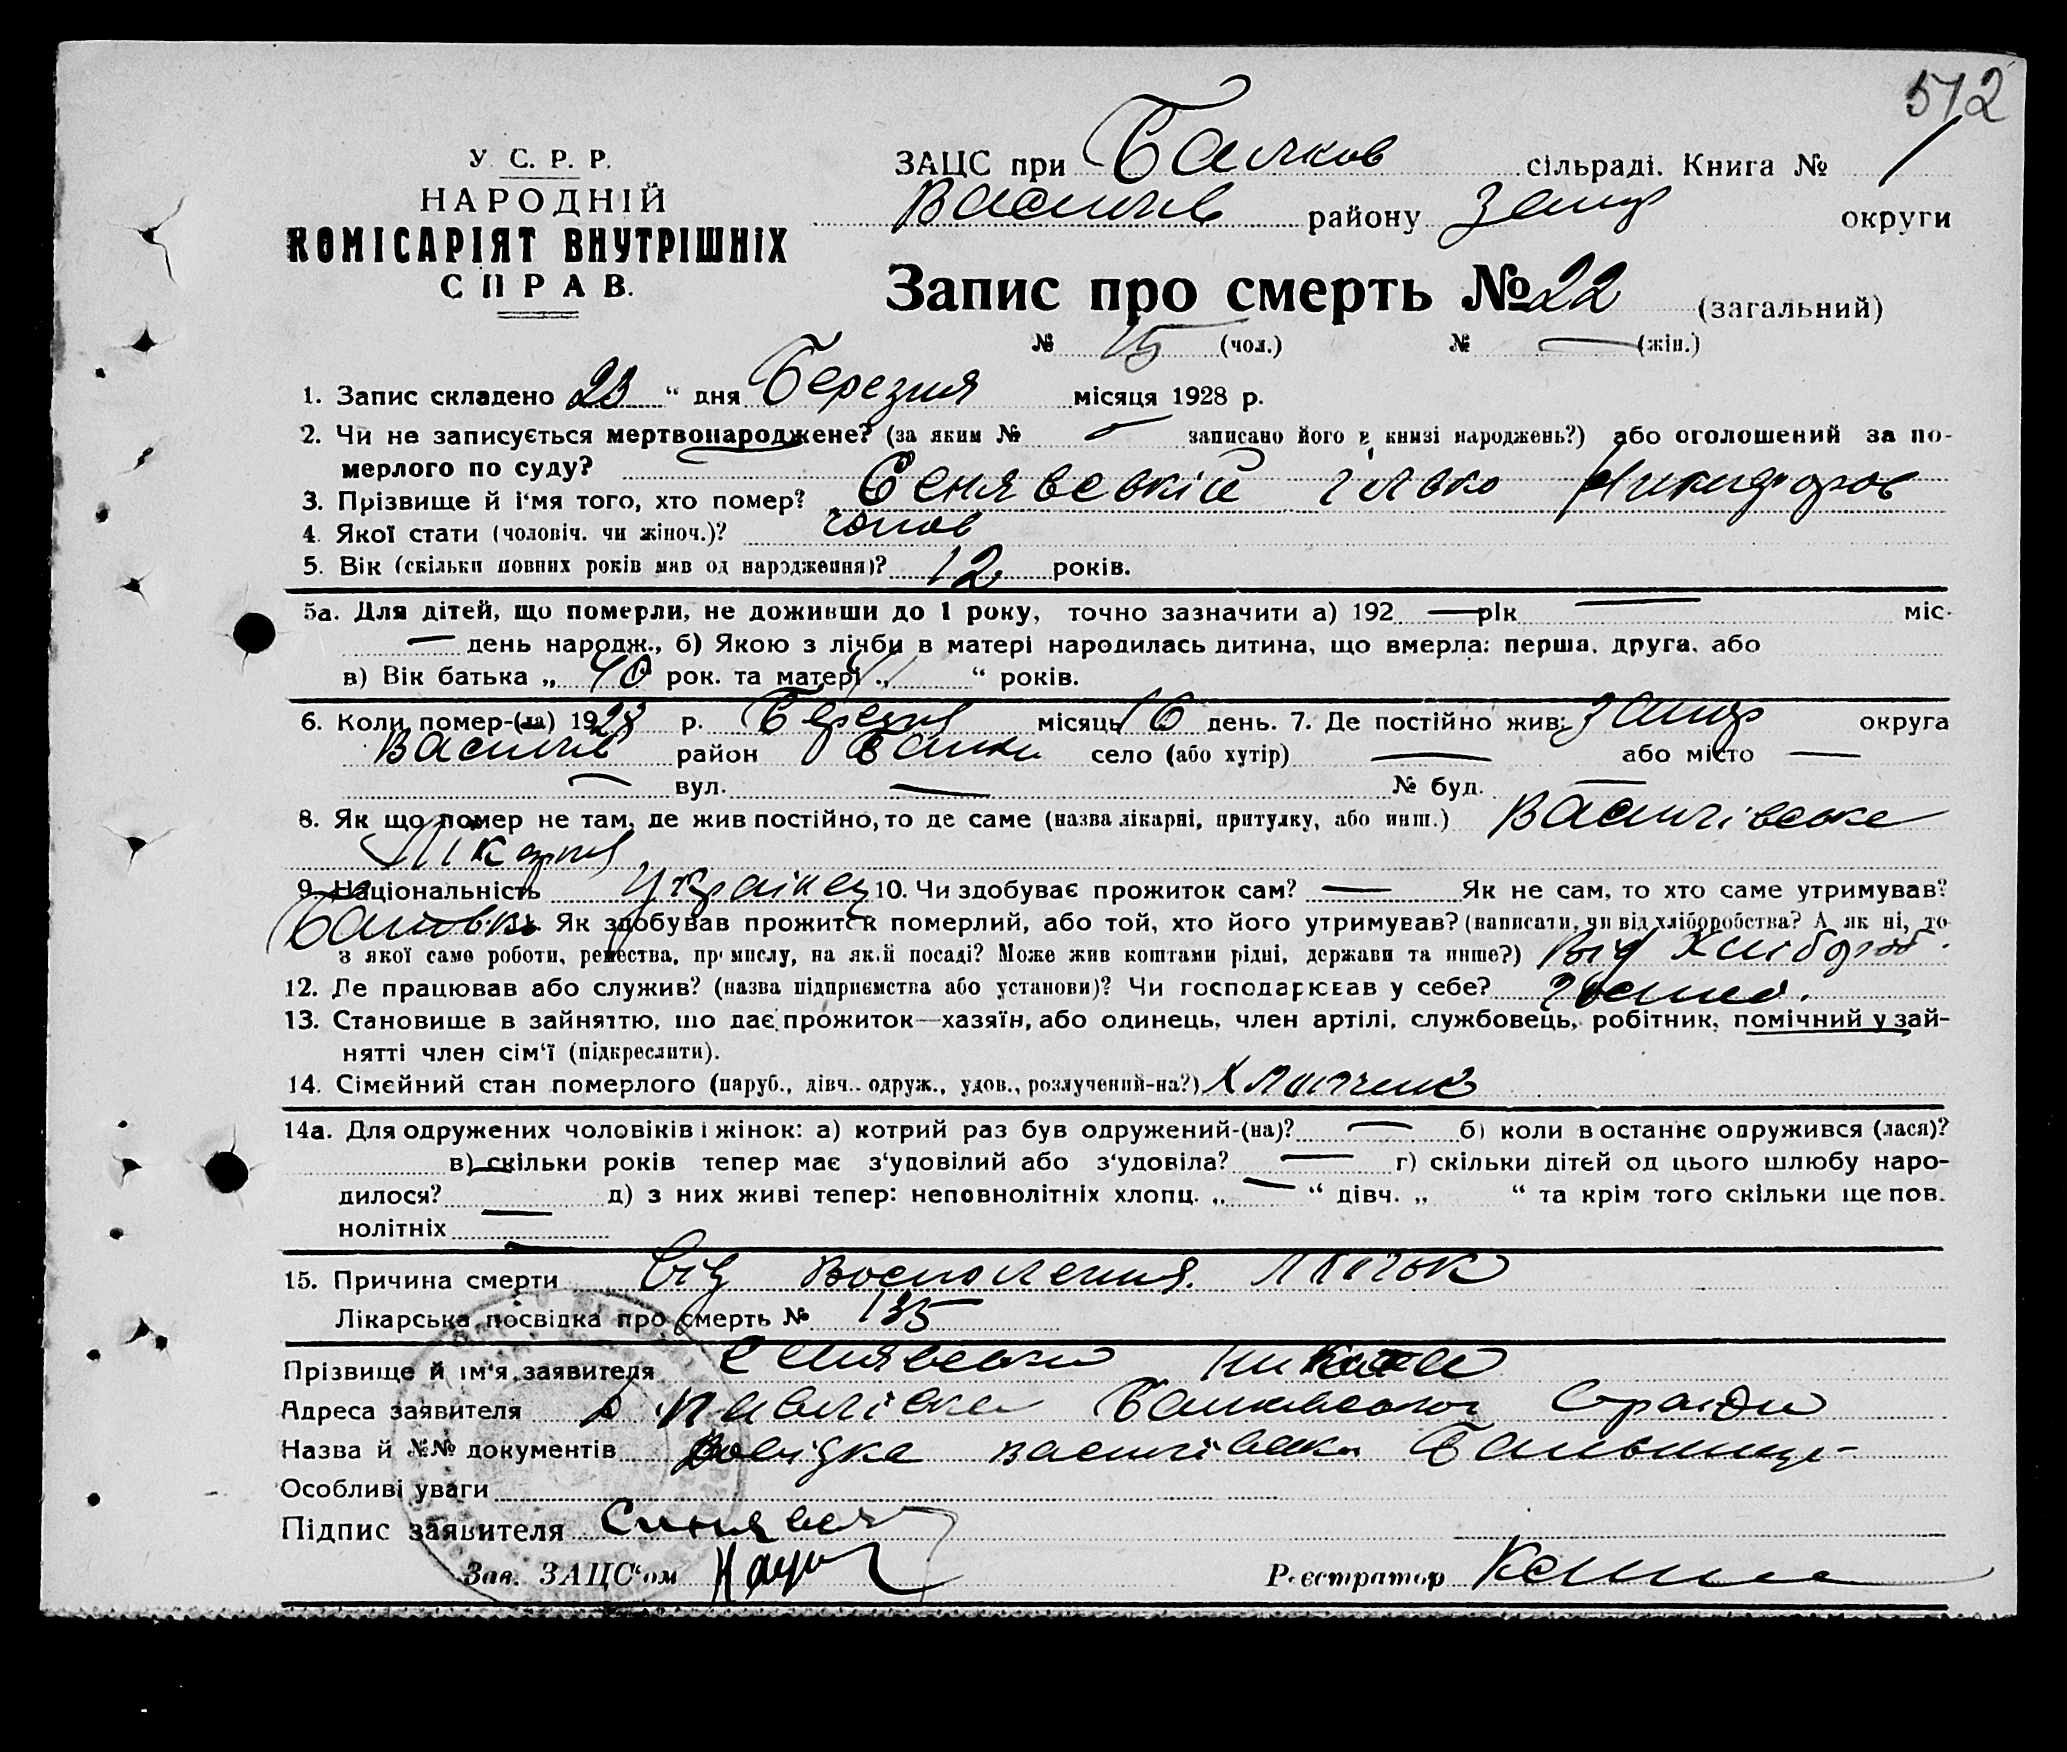 572
У. С. Р. Р.
НАРОДНІЙ
КОМІСАРІЯТ ВНУТРІШНІХ
СПРАВ.
ЗАЦС при Балков сільраді. Книга № 1
Василів району Запор округи
Запис про смерть № 22 (загальний)
№ 15 (чол.) № — (жін.)
1. Запис складено 23 “ дня Березня місяця 1928 р.
2. Чи не записується мертвонароджене? (за яким № — записано його в книзі народжень?) або оголошений за по-
мерлого по суду?
3. Прізвище й і‘мя того, хто помер? Сенявський Никифоров
4. Якої стати (чоловіч. чи жіноч.)? чолов
5. Вік (скільки повних років мав од народження)? 12 років.
5а. Для дітей, що померли, не доживши до 1 року, точно зазначити а) 192 — рік — міс.
— день народж., б) Якою з лічби в матері народилась дитина, що вмерла: перша, друга, або
в) Вік батька „ 40 рок. та матері „ “ років.
6. Коли помер-(ла) 1928 р. Березня місяць 16 день. 7. Де постійно жив: Запор округа
Василів район Балки село (або хутір) — або місто —
— вул. — № буд. —
8. Як що помер не там, де жив постійно, то де саме (назва лікарні, притулку, або инш.) Василівська
Лікарня
9. Національність Українец 10. Чи здобуває прожиток сам? — Як не сам, то хто саме утримував?
Батько Як здобував прожиток померлий, або той, хто його утримував? (написати, чи від хліборобства? А як ні, то
з якої саме роботи, ремества, промислу, на якій посаді? Може жив коштами рідні, держави та инше?) Від Хлібороб.
12. Де працював або служив? (назва підприємства або установи)? Чи господарював у себе?
13. Становище в зайняттю, що дає прожиток—хазяїн, або одинець, член артілі, службовець, робітник, помічний у зай-
нятті член сім‘ї (підкреслити).
14. Сімейний стан померлого (паруб., дівч., одруж., удов., розлучений-на?) Хлопчик
14а. Для одружених чоловіків і жінок: а) котрий раз був одружений-(на)? — б) коли в останнє одружився (лася)?
в) скільки років тепер має з‘удовілий або з‘удовіла? — г) скільки дітей од цього шлюбу наро-
дилося? д) з них живі тепер: неповнолітніх хлопц. „ — “ дівч. „ “ та крім того скільки ще пов.
нолітніх —
15. Причина смерти Від Воспаления Лігьк
Лікарська посвідка про смерть № 135
Прізвище й ім‘я заявителя Сенявський
Адреса заявителя Павлівка Балківської Сради
Назва й №№ документів Довідка василівськ Больниці
Особливі уваги
Підпис заявителя Синявск
Зав. ЗАЦС‘ом
Реєстратор